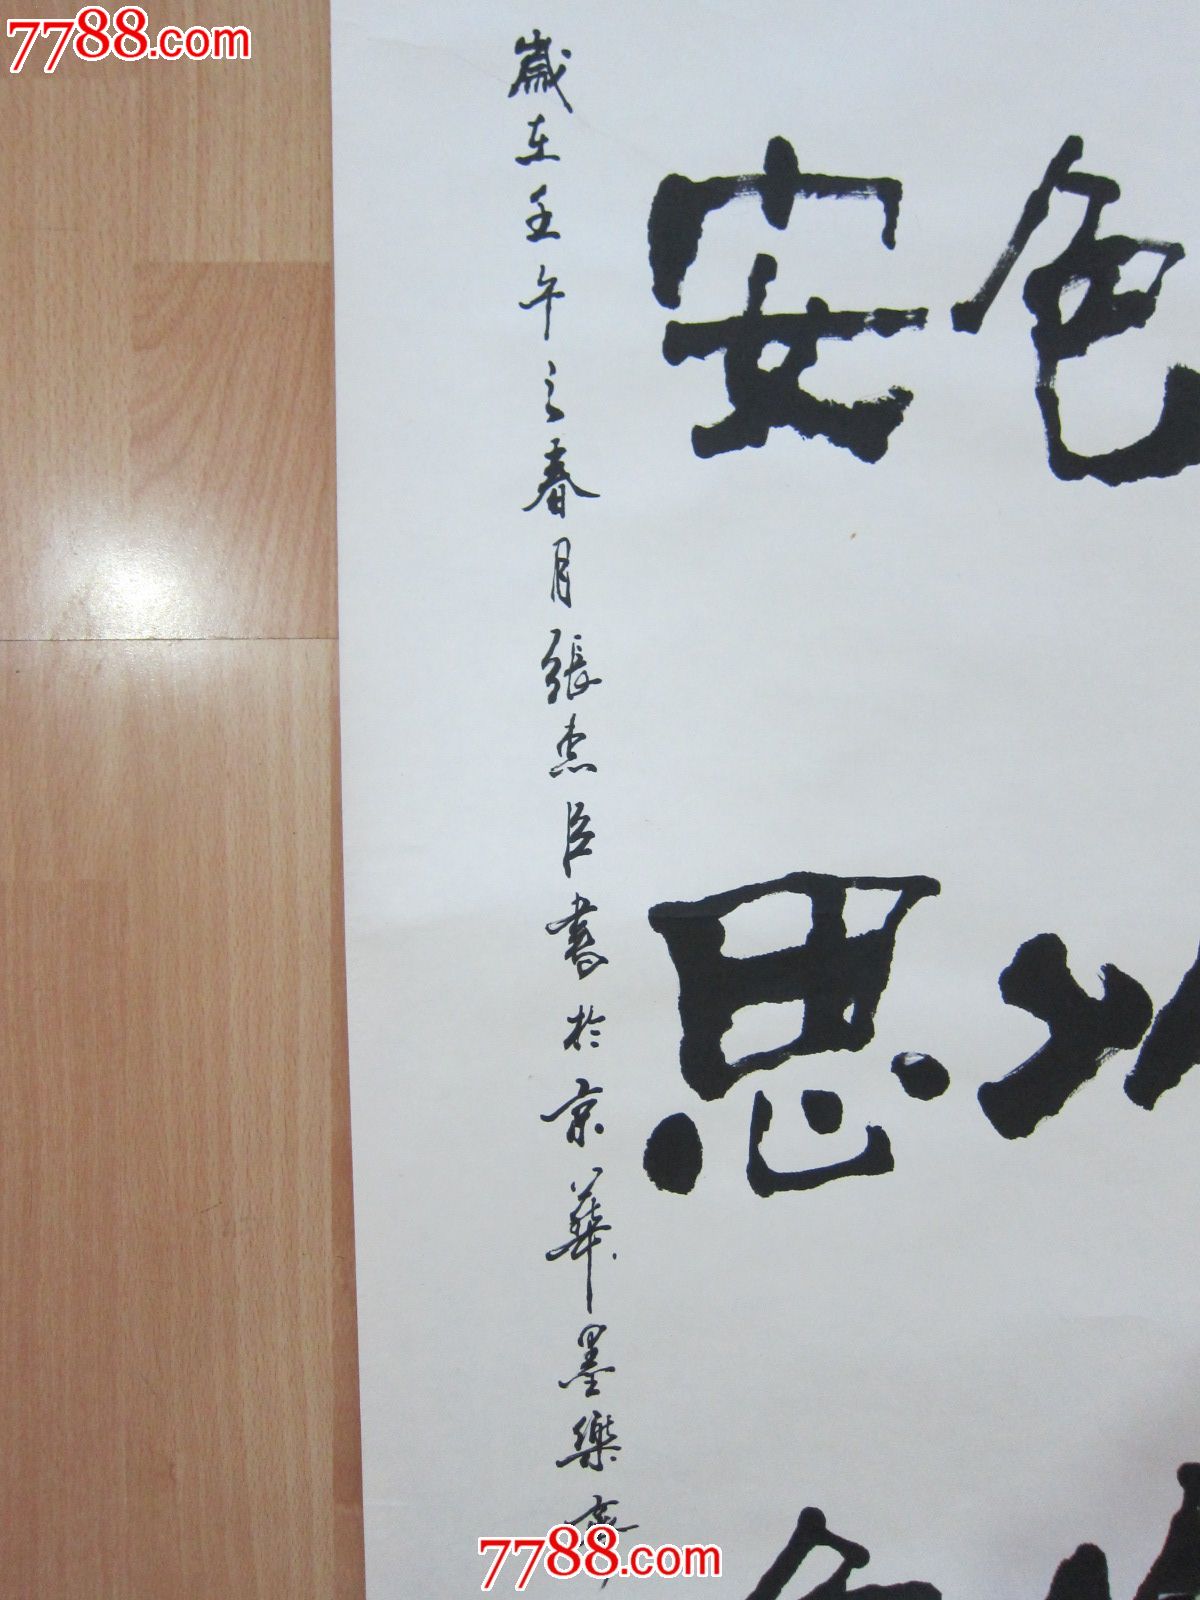 7788.com
色
安思
歲在壬午之春月張杰臣書於京華墨樂齋
7788.com